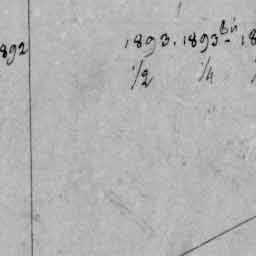 892 1893. 1893 - 18
1/2 1/4